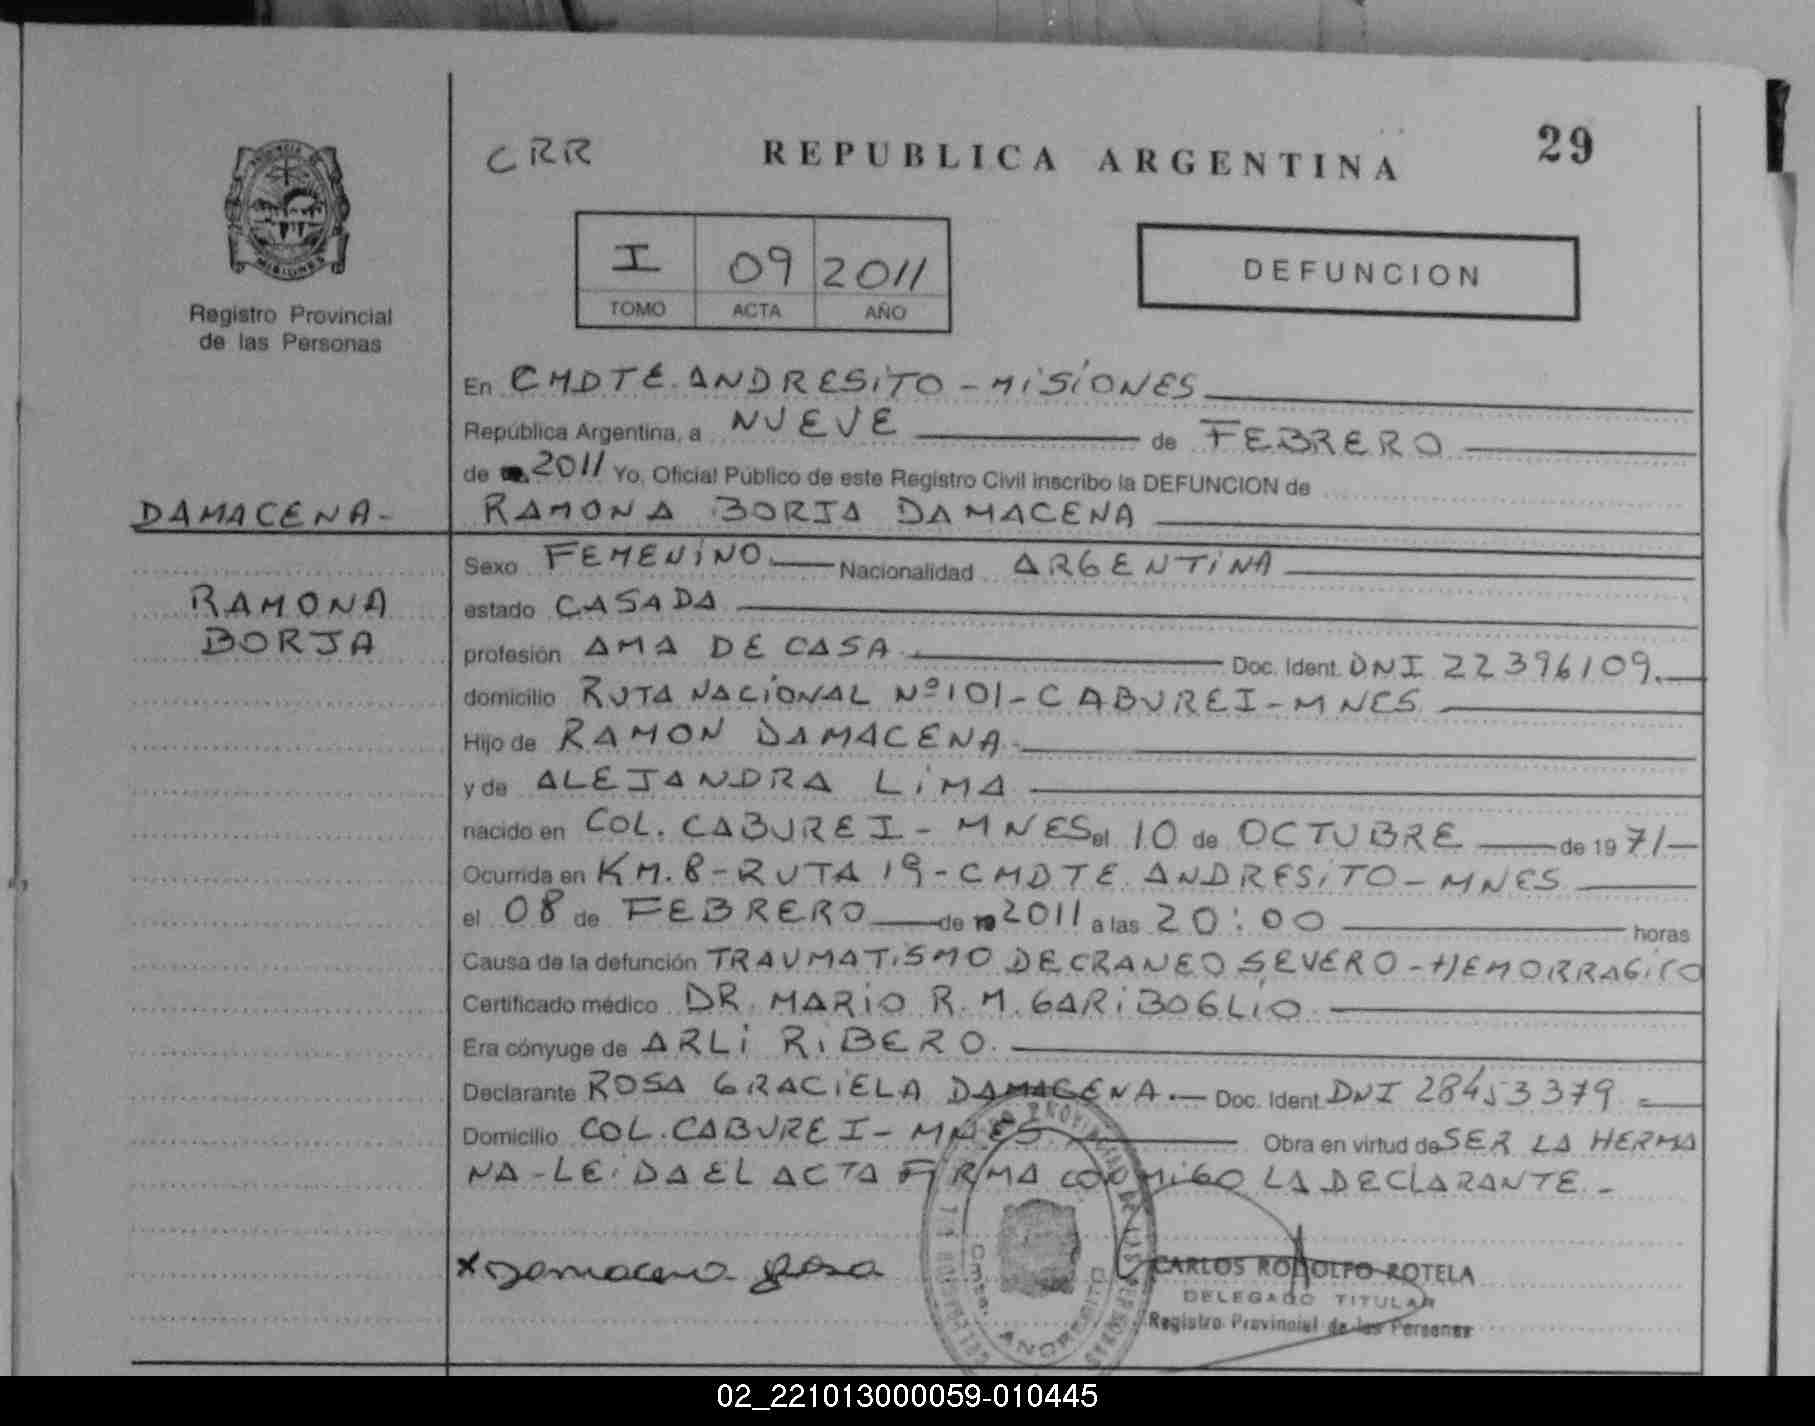 CRR
REPUBLICA ARGENTINA
29
PROVINCIA DE
MISIONES
Registro Provincial
de las Personas
I 09 2011
TOMO ACTA AÑO
DEFUNCION
En CMDTE. ANDRESITO - MISIONES
República Argentina, a NUEVE de FEBRERO
de 2011 Yo, Oficial Público de este Registro Civil inscribo la DEFUNCION de
DAMACENA- RAMONA BORJA DAMACENA
Sexo FEMENINO Nacionalidad ARGENTINA
RAMONA estado CASADA
BORJA profesión AMA DE CASA Doc. Ident. DNI 22396109.
domicilio RUTA NACIONAL Nº 101 - CABUREI - MNES
Hijo de RAMON DAMACENA
y de ALEJANDRA LIMA
nacido en COL. CABUREI - MNES el 10 de OCTUBRE de 1971
Ocurrida en KM. 8 - RUTA 19 - CMDTE ANDRESITO - MNES
el 08 de FEBRERO de 2011 a las 20:00 horas
Causa de la defunción TRAUMATISMO DE CRANEO SEVERO - HEMORRAGICO
Certificado médico DR. MARIO R. M. GARIBOGLIO
Era cónyuge de ARLI RIBERO.
Declarante ROSA GRACIELA DAMACENA. Doc. Ident. DNI 28453379
Domicilio COL. CABUREI - MNES Obra en virtud de SER LA HERMA
NA - LEIDA EL ACTA FIRMA CONMIGO LA DECLARANTE -
x Damacena Rosa
CARLOS RODOLFO ROTELA
DELEGADO TITULAR
Registro Provincial de las Personas
PROVINCIAL DE LAS PERSONAS
Cmte. ANDRESITO
02_221013000059-010445